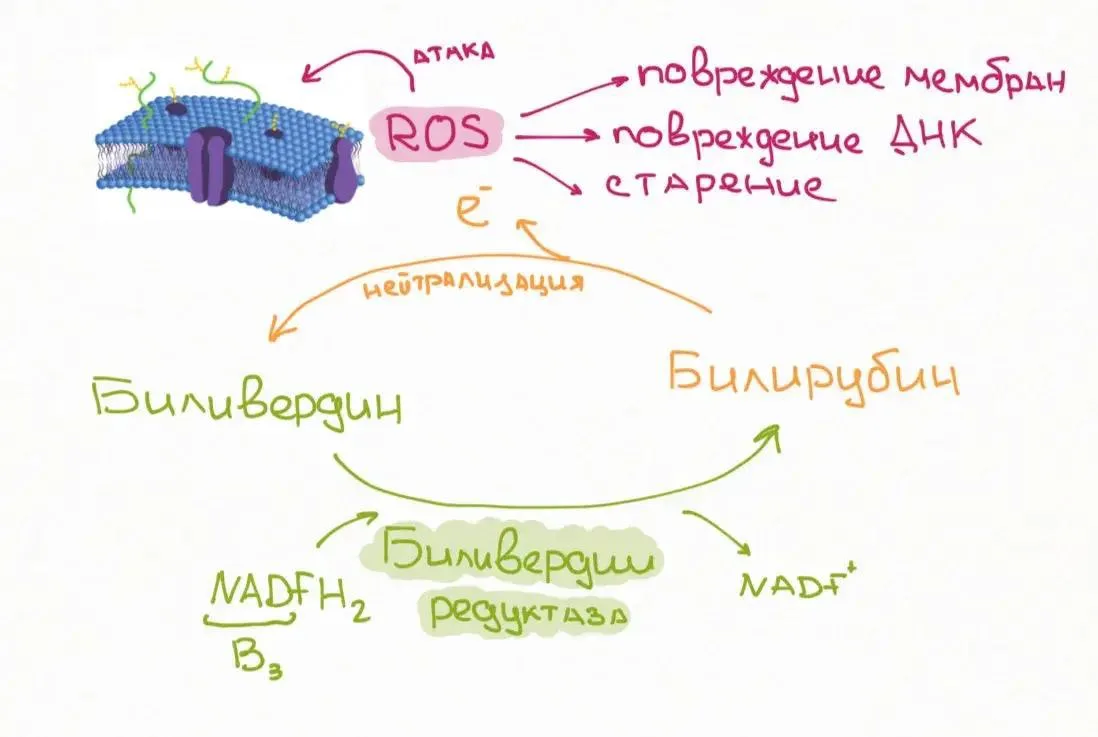 атака
ROS
повреждение мембран
повреждение ДНК
старение
e⁻
нейтрализация
Билирубин
Биливердин
Биливердин
редуктаза
NADFH₂
B₃
NADF⁺